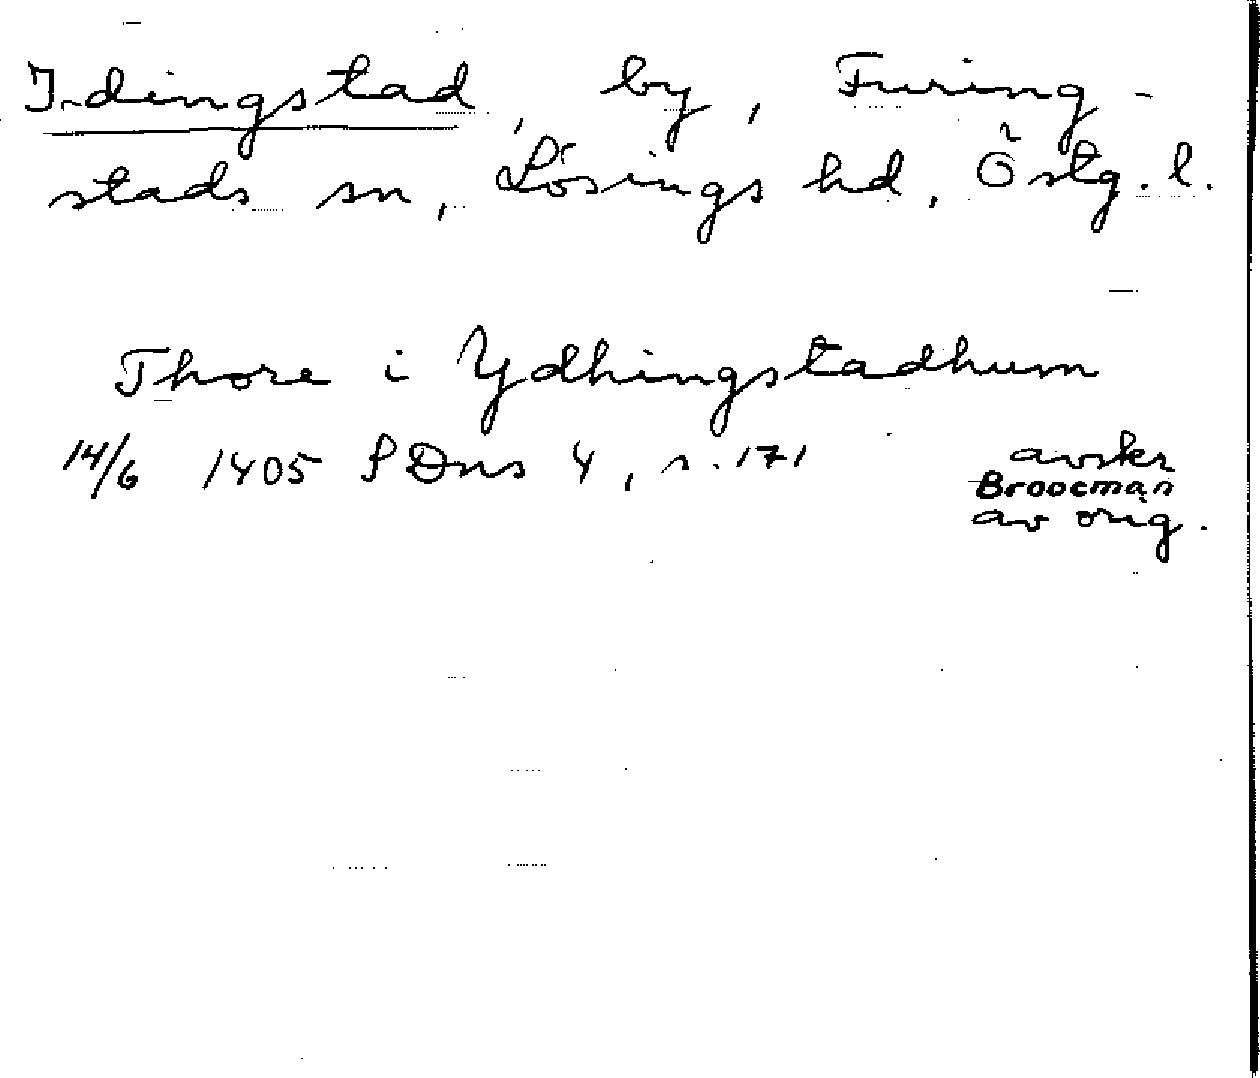 Idingstad, by, Furing-
stads sn, Lösings hd, Östg. l.
Thore i Ydhingstadhum
14/6 1405 SDns 4, s. 171
avskr
Broocman
av orig.